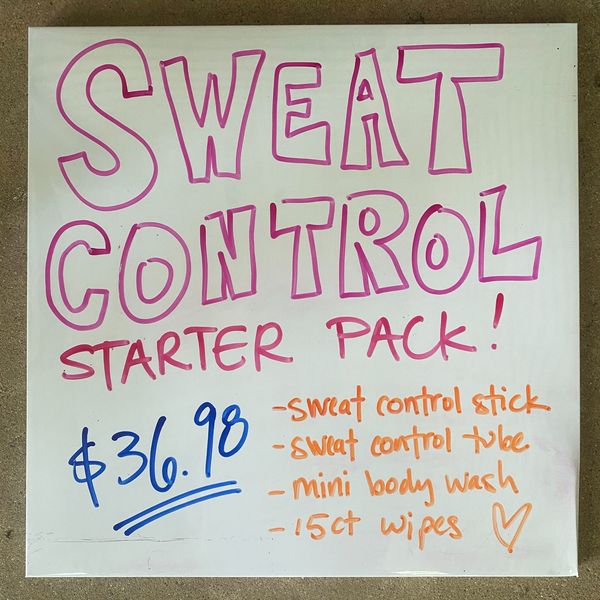 SWEAT
CONTROL
STARTER PACK!
$36.98
-sweat control stick
-sweat control tube
-mini body wash
-15ct wipes ♡